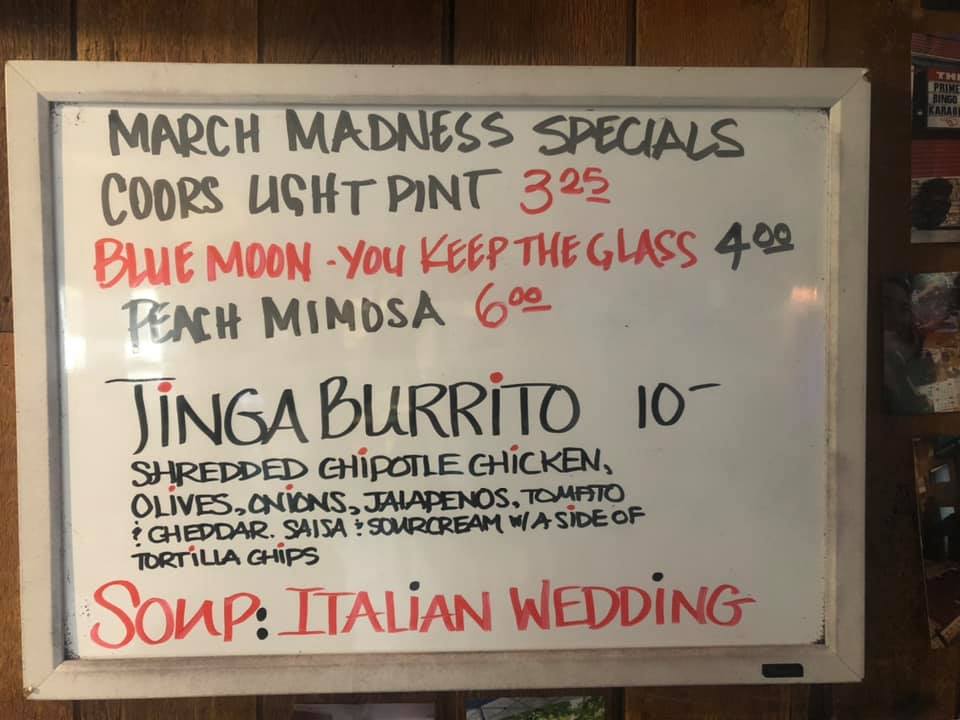 MARCH MADNESS SPECIALS
COORS LIGHT PINT 3 25
BLUE MOON - YOU KEEP THE GLASS 4 00
PEACH MIMOSA 6 00
TINGA BURRITO 10-
SHREDDED CHIPOTLE CHICKEN,
OLIVES, ONIONS, JALAPENOS, TOMATO
& CHEDDAR. SALSA & SOURCREAM W/ A SIDE OF
TORTILLA CHIPS
SOUP: ITALIAN WEDDING
PRIME
BINGO